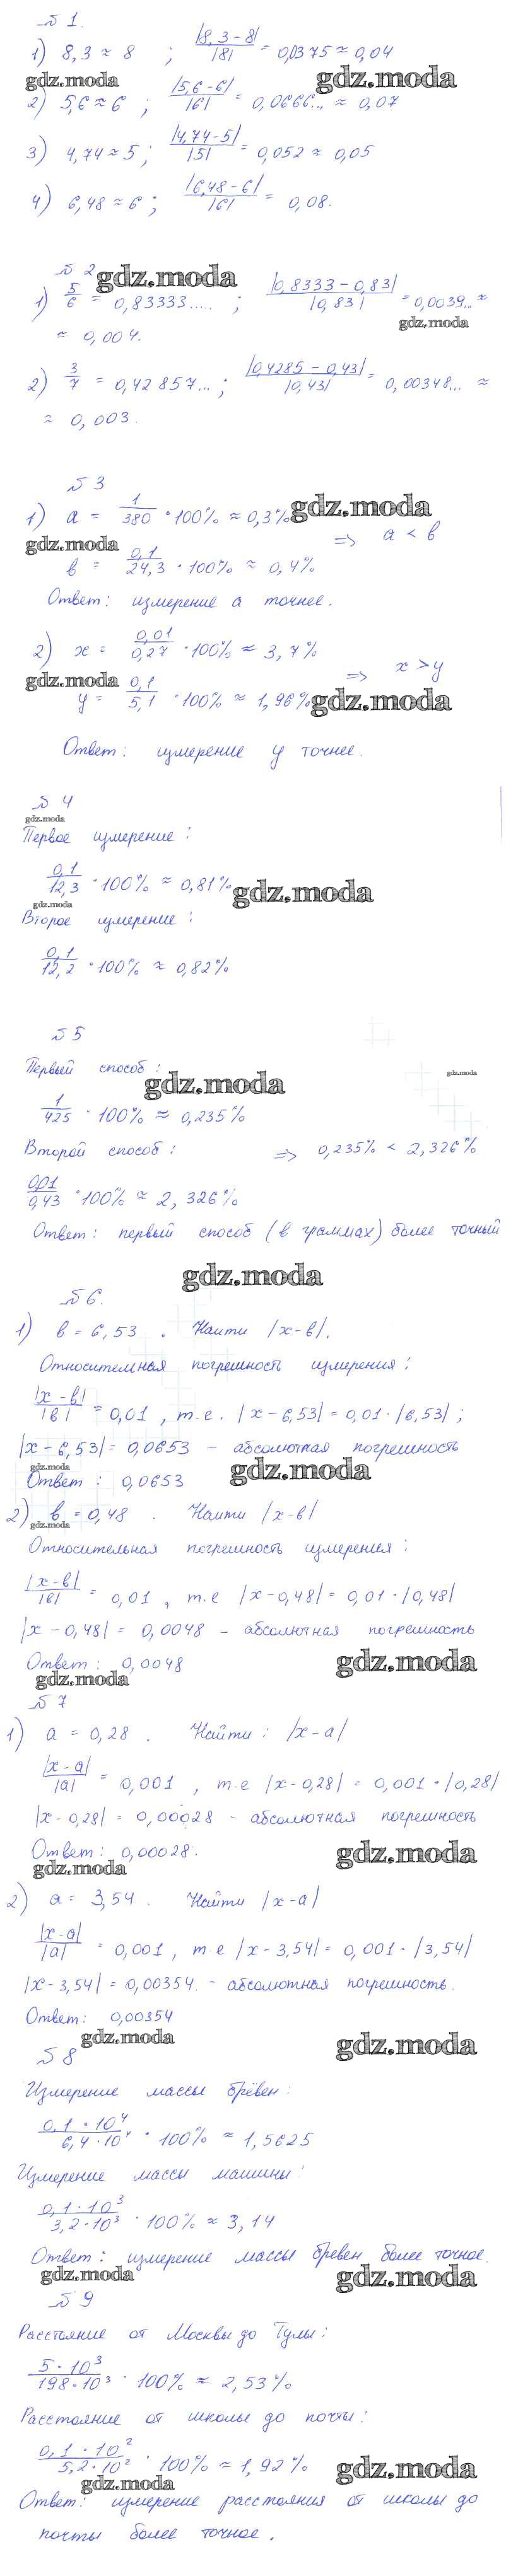 № 1.
1) 8,3 ≈ 8 ; |8,3-8|/|8| = 0,0375 ≈ 0,04
gdz.moda gdz.moda
2) 5,6 ≈ 6 ; |5,6-6|/|6| = 0,0666... ≈ 0,07
3) 4,74 ≈ 5 ; |4,74-5|/|5| = 0,052 ≈ 0,05
4) 6,48 ≈ 6 ; |6,48-6|/|6| = 0,08.
№ 2 gdz.moda
1) 5/6 = 0,83333..... ; |0,8333-0,83|/|0,83| = 0,0039.. ≈
gdz.moda
≈ 0,004.
2) 3/7 = 0,42857... ; |0,4285-0,43|/|0,43| = 0,00348... ≈
≈ 0,003.
№ 3
1) a = 1/380 · 100% ≈ 0,3% gdz.moda
gdz.moda => a < b
b = 0,1/24,3 · 100% ≈ 0,4%
Ответ: измерение a точнее.
2) x = 0,01/0,27 · 100% ≈ 3,7%
gdz.moda => x > y
y = 0,1/5,1 · 100% ≈ 1,96% gdz.moda
Ответ: измерение y точнее.
№ 4
gdz.moda
Первое измерение:
0,1/12,3 · 100% ≈ 0,81% gdz.moda
gdz.moda
Второе измерение:
0,1/12,2 · 100% ≈ 0,82%
№ 5
Первый способ: gdz.moda
gdz.moda
1/425 · 100% ≈ 0,235%
Второй способ: => 0,235% < 2,326%
0,01/0,43 · 100% ≈ 2,326%
Ответ: первый способ (в граммах) более точный
gdz.moda
№ 6.
1) b = 6,53 . Найти |x-b|.
Относительная погрешность измерения:
|x-b|/|b| = 0,01 , т.е. |x-6,53| = 0,01·|6,53| ;
|x-6,53| = 0,0653 - абсолютная погрешность
gdz.moda gdz.moda
Ответ: 0,0653
2) b = 0,48 . Найти |x-b|
gdz.moda
Относительная погрешность измерения:
|x-b|/|b| = 0,01 , т.е |x-0,48| = 0,01·|0,48|
|x-0,48| = 0,0048 - абсолютная погрешность
Ответ: 0,0048 gdz.moda
gdz.moda
№ 7
1) a = 0,28 . Найти: |x-a|
|x-a|/|a| = 0,001 , т.е |x-0,28| = 0,001·|0,28|
|x-0,28| = 0,00028 - абсолютная погрешность
Ответ: 0,00028. gdz.moda
gdz.moda
2) a = 3,54 . Найти |x-a|
|x-a|/|a| = 0,001 , т е |x-3,54| = 0,001·|3,54|
|x-3,54| = 0,00354 - абсолютная погрешность.
Ответ: 0,00354
gdz.moda gdz.moda
№ 8
Измерение массы брёвен:
0,1·10⁴/6,4·10⁴ · 100% ≈ 1,5625
Измерение массы машины:
0,1·10³/3,2·10³ · 100% ≈ 3,14
Ответ: измерение массы бревен более точное.
gdz.moda gdz.moda
№ 9
Расстояние от Москвы до Тулы:
5·10³/198·10³ · 100% ≈ 2,53%
Расстояние от школы до почты:
0,1·10²/5,2·10² · 100% ≈ 1,92% gdz.moda
gdz.moda
Ответ: измерение расстояния от школы до
почты более точное.